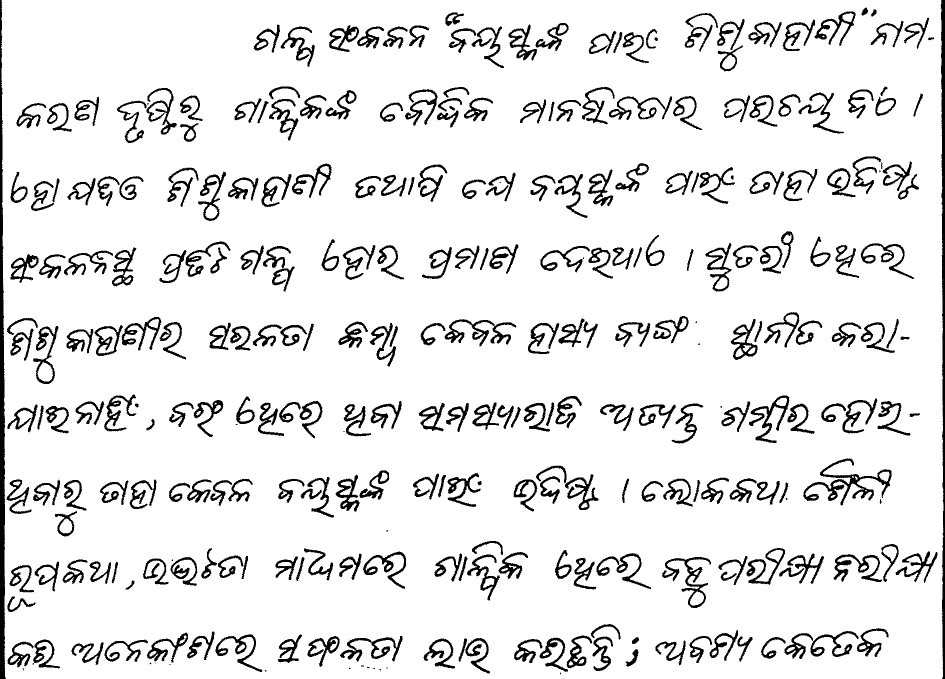 ଗଳ୍ପ ସଂକଳନ “ବୟସ୍କଙ୍କ ପାଇଂ ଶିଶୁକାହାଣୀ” ନାମ-
କରଣ ଦୃଷ୍ଟିରୁ ଗାଳ୍ପିକଙ୍କ ବୌଦ୍ଧିକ ମାନସିକତାର ପରିଚୟ ଦିଏ ।
ଏହା ଯଦିଓ ଶିଶୁକାହାଣୀ ତଥାପି ଯେ ବୟସ୍କଙ୍କ ପାଇଂ ତାହା ଉଦ୍ଦିଷ୍ଟ
ସଂକଳନସ୍ଥ ପ୍ରତିଟି ଗଳ୍ପ ଏହାର ପ୍ରମାଣ ଦେଇଥାଏ । ସୁତରାଂ ଏଥିରେ
ଶିଶୁକାହାଣୀର ସରଳତା କିମ୍ବା କେବଳ ହାସ୍ୟ ବ୍ୟଙ୍ଗ ସ୍ଥାନୀତ କରା-
ଯାଇନାହିଂ, ବରଂ ଏଥିରେ ଥିବା ସମସ୍ୟାରାଜି ଅତ୍ୟନ୍ତ ଗମ୍ଭୀର ହୋଇ-
ଥିବାରୁ ତାହା କେବଳ ବୟସ୍କଙ୍କ ପାଇଂ ଉଦ୍ଦିଷ୍ଟ । ଲୋକକଥା ଶୈଳୀ
ରୂପକଥା, ଉଦ୍ଭଟତା ମାଧ୍ୟମରେ ଗାଳ୍ପିକ ଏଥିରେ ବହୁ ପରୀକ୍ଷା ନିରୀକ୍ଷା
କରି ଅନେକାଂଶରେ ସଫଳତା ଲାଭ କରିଛନ୍ତି; ଅବଶ୍ୟ କେତେକ